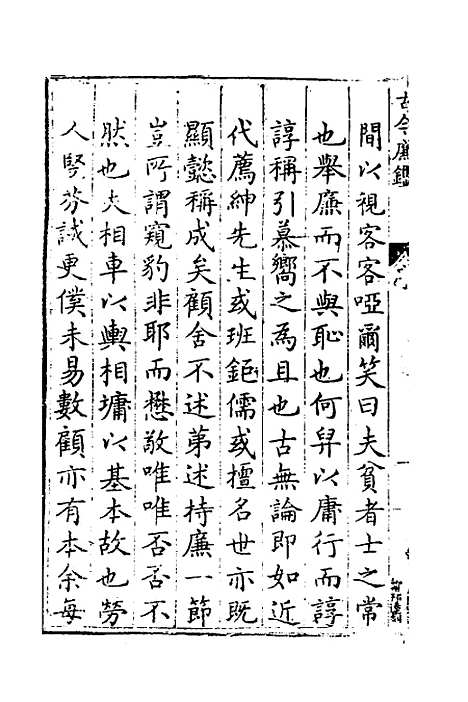 古今廉鑑
間以視客客啞爾笑曰夫貧者士之常
也舉廉而不與恥也何舁以庸行而諄
諄稱引慕嚮之為且也古無論即如近
代薦紳先生或班鉅儒或擅名世亦既
顯懿稱成矣顧舍不述苐述持廉一節
豈所謂窺豹非耶而懋敬唯唯否否不
然也夫相車以輿相墉以基本故也勞
人䝨芬誠更僕未易數顧亦有本余每